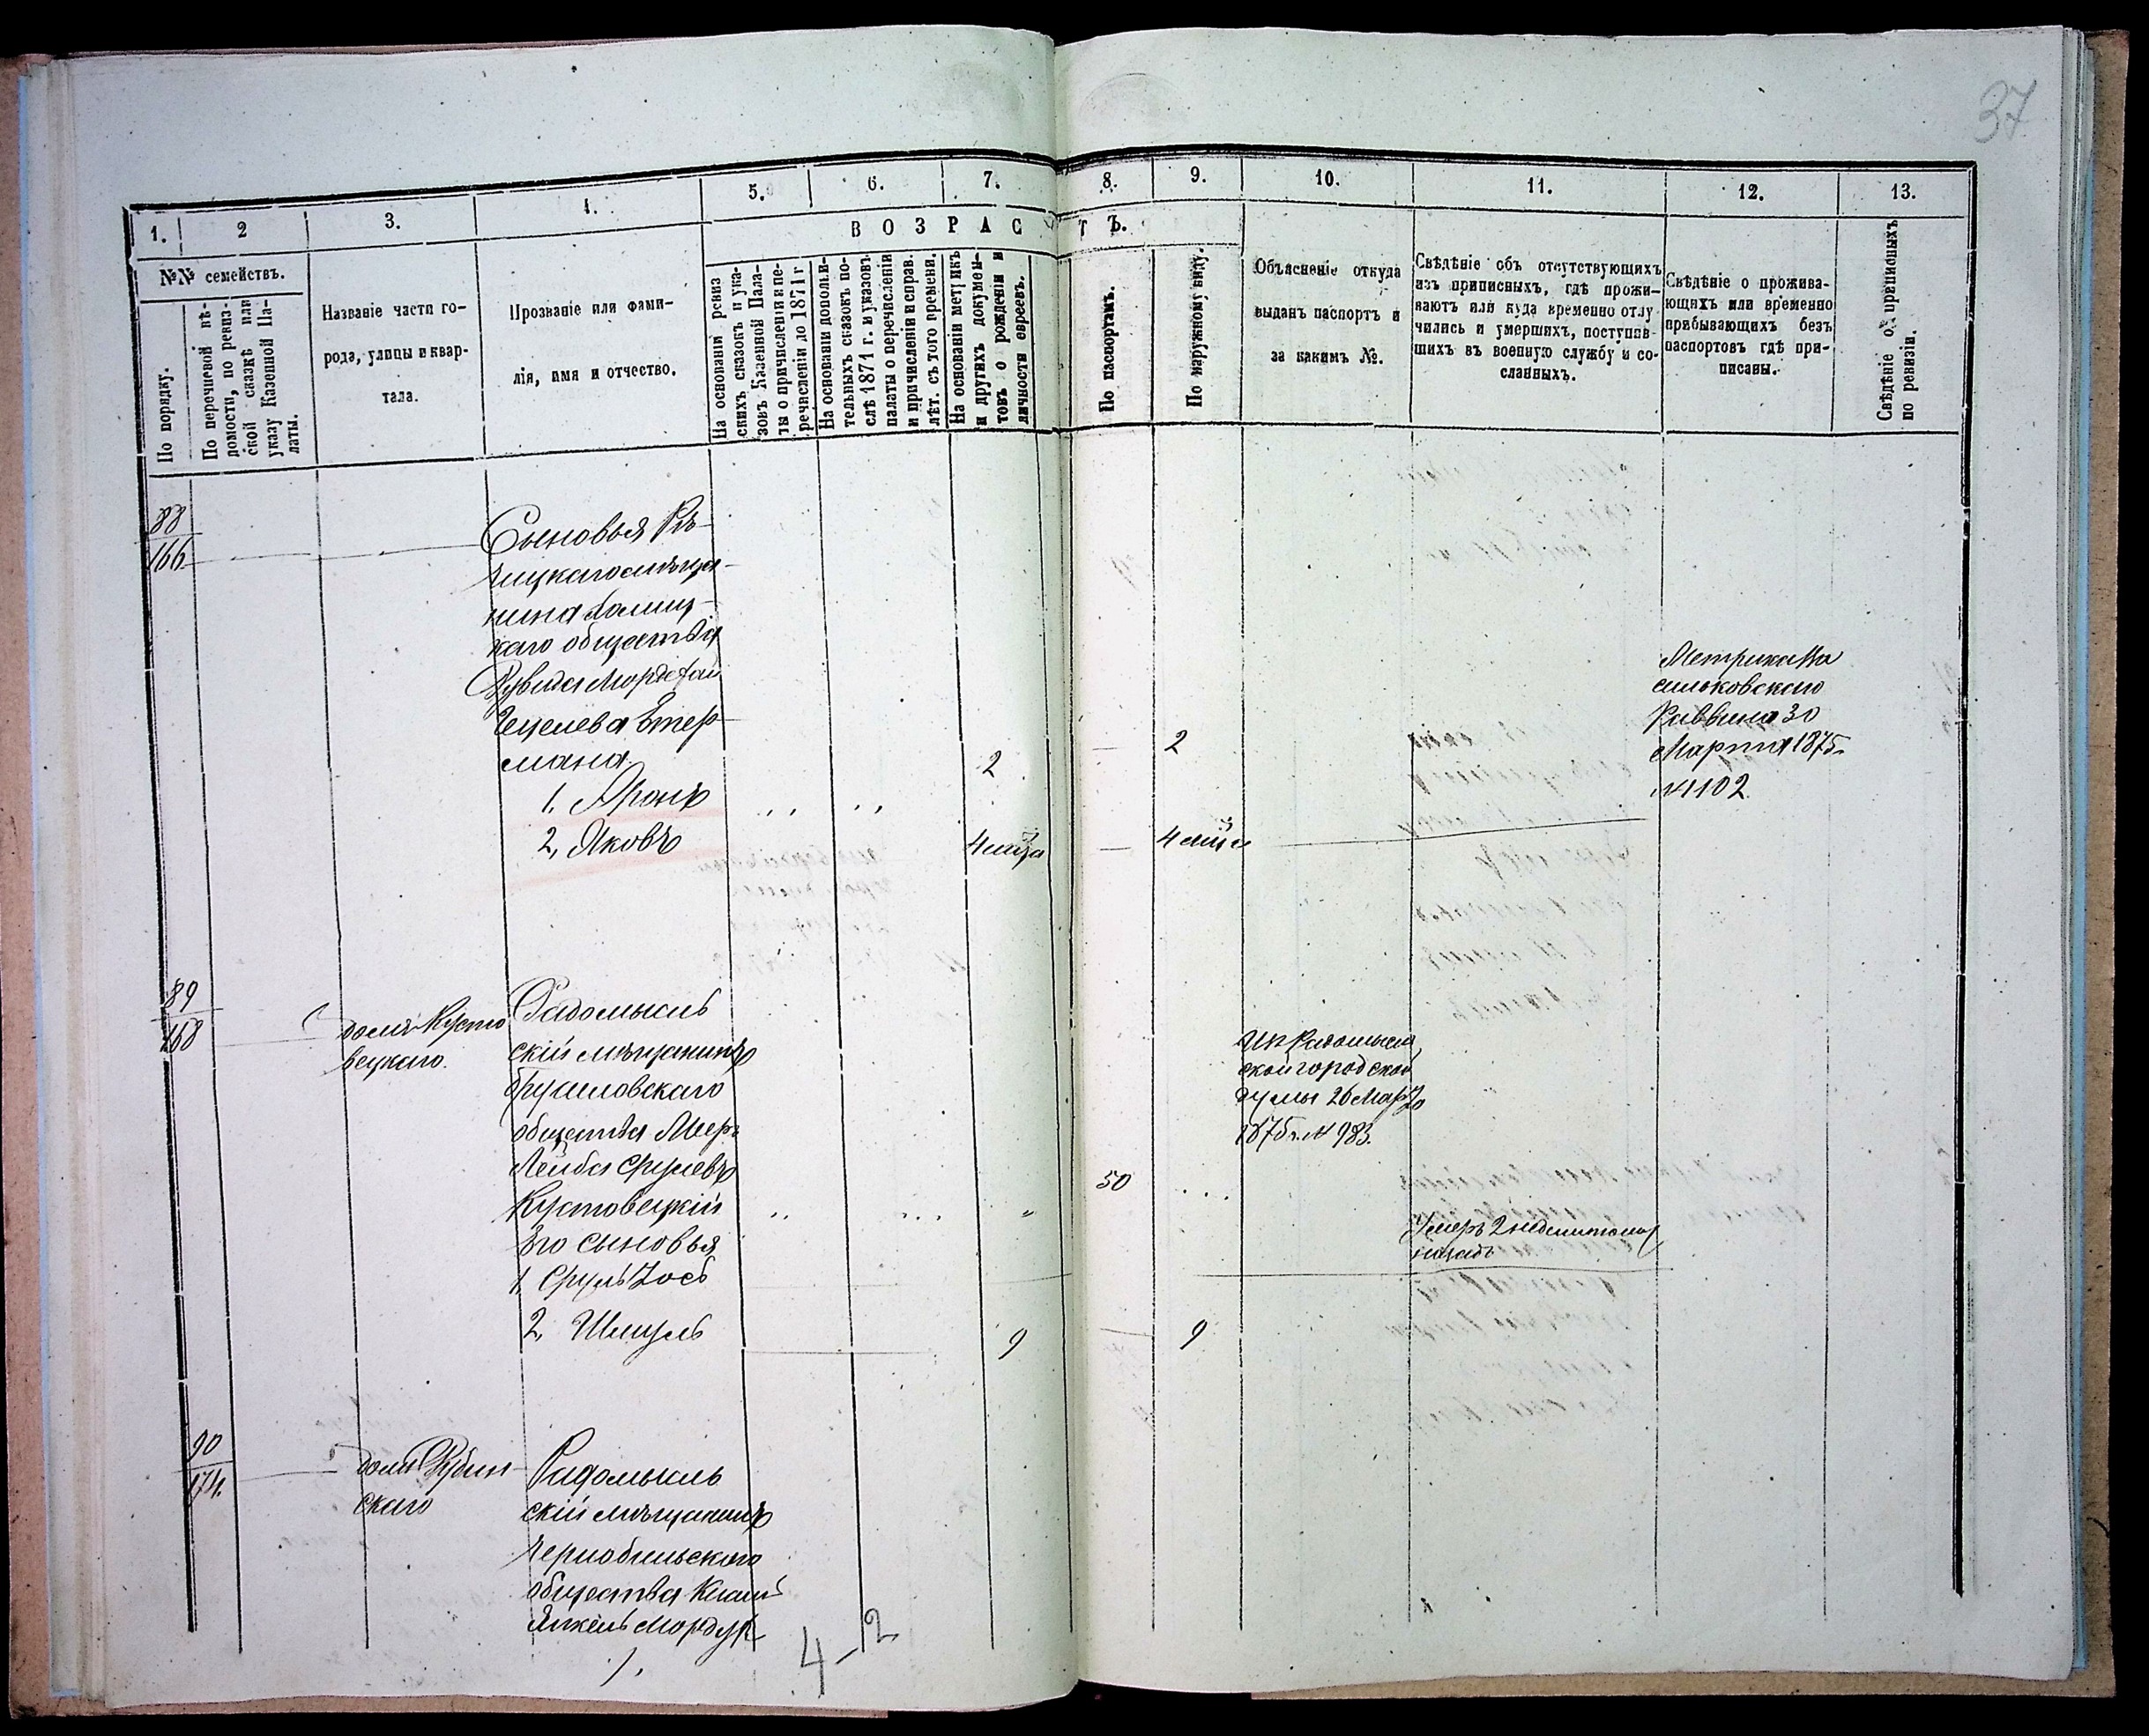 37
1.
2
3.
4.
5.
6.
7.
8.
9.
10.
11.
12.
13.
ВОЗРАСТЪ.
№№ семействъ.
По порядку.
По перечневой вѣ-
домости, по ревиз-
ской сказкѣ или
указу Казенной Па-
латы.
Названіе части го-
рода, улицы и квар-
тала.
Прозваніе или фами-
лія, имя и отчество.
На основаніи ревиз
скихъ сказокъ и ука-
зовъ Казенной Пала-
ты о причисленіи и пе-
речисленіи до 1871 г
На основаніи дополни-
тельныхъ сказокъ по-
слѣ 1871 г. и указовъ
палаты о перечисленіи
и причисленіи и справ.
лѣт. съ того времени.
На основаніи метрикъ
и другихъ докумен-
товъ о рожденіи и
личности евреевъ.
По паспортамъ.
По наружному виду.
Объясненіе откуда
выданъ паспортъ и
за какимъ №.
Свѣдѣніе объ отсутствующихъ
изъ приписныхъ, гдѣ прожи-
ваютъ или куда временно отлу
чились и умершихъ, поступив-
шихъ въ военную службу и со-
сланныхъ.
Свѣдѣніе о прожива-
ющихъ или временно
прибывающихъ безъ
паспортовъ гдѣ при-
писаны.
Свѣдѣніе о приписныхъ
по ревизіи.
88
166
Сыновья Рѣ-
чицкаго мѣща-
нина
каго общества
Рувина Мордхай
Гецелева Этер-
мана
1, Аронъ
2
2
2, Яковъ
4 мѣца
4 мѣца
Метрика Ва
сильковскаго
Раввина 30
Марта 1875
№ 102.
89
168
домъ Кусто
вецкаго.
Радомысль
скій мѣщанинъ
Брусиловскаго
общества Меръ
Лейба Срулевъ
Кустовецкій
50
Его сыновья
1, Сруль Іось
2, Шмуль
9
9
Из Радомысль
ской городской
думы 26 Марта
1875 г. № 983.
Умеръ 2 недели тому
назадъ
90
174.
домъ Рубин-
скаго
Радомысль
скій мѣщанинъ
Чернобыльскаго
общества
Янкель Мордух
4-2